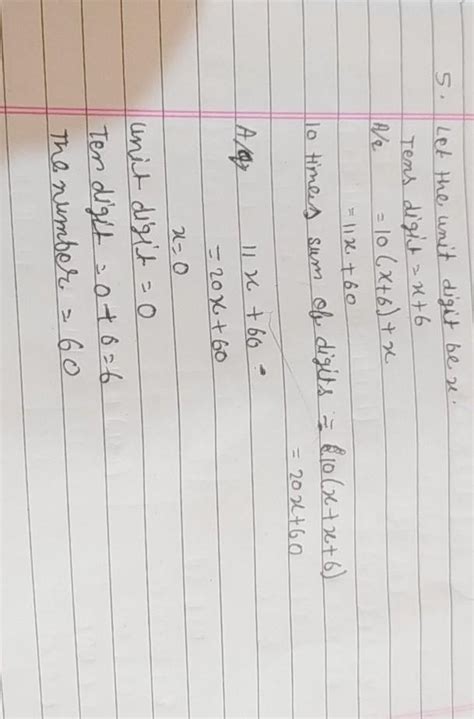 5. Let the unit digit be x.
Tens digit = x+6
A/q = 10(x+6)+x
= 11x+60
10 times sum of digits = 10(x+x+6)
= 20x+60
A/q 11x+60 =
= 20x+60
x=0
unit digit = 0
Ten digit = 0+6=6
The number = 60